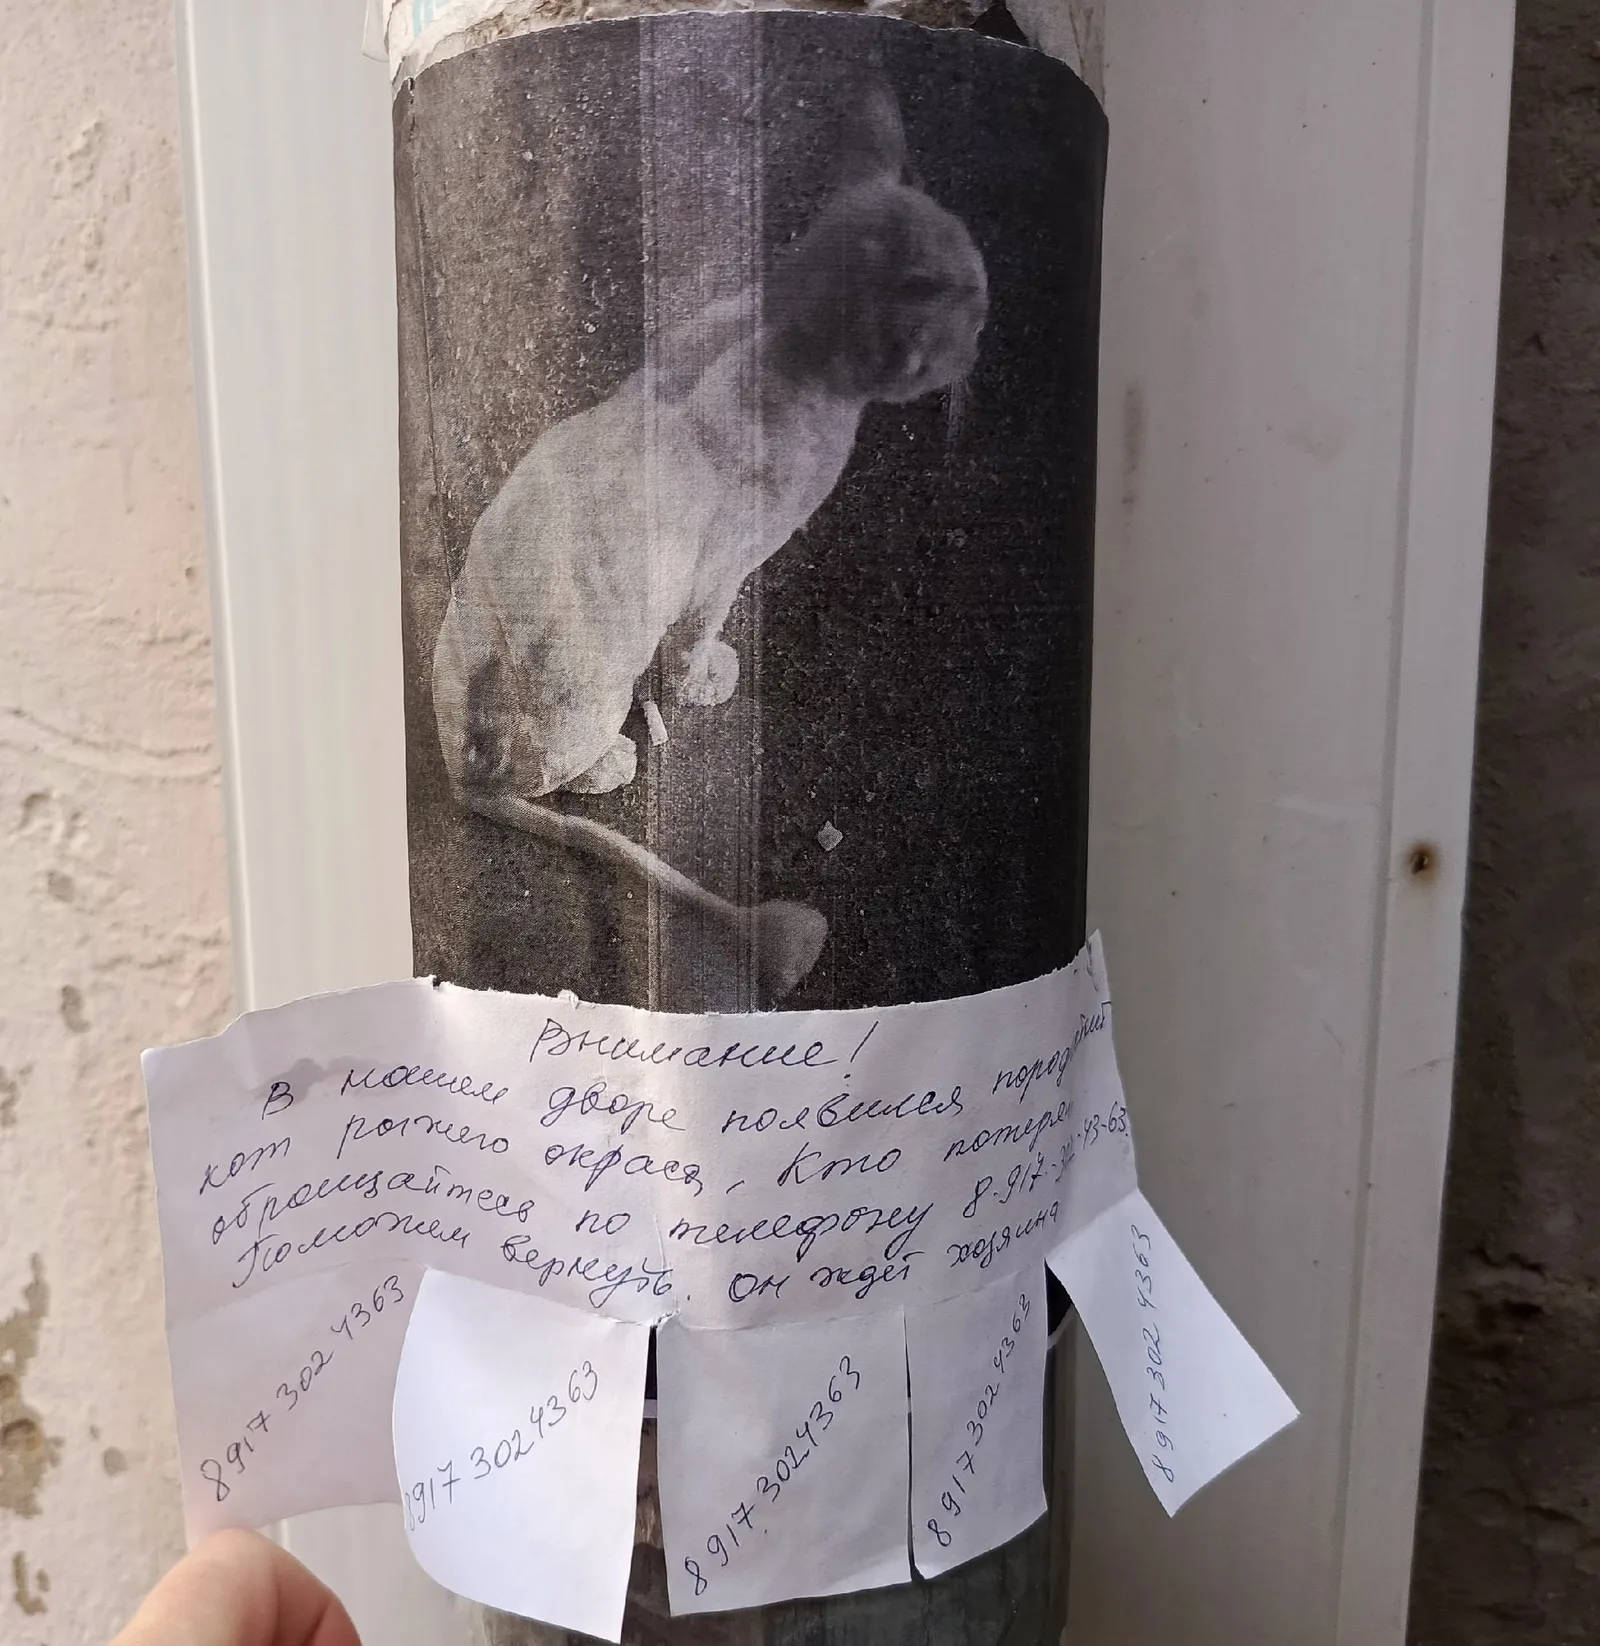 Внимание!
В нашем дворе появился породистый
кот рыжего окраса, Кто потерял
обращайтесь по телефону 8-917-302-43-63.
Поможем вернуть. Он ждёт хозяина
8917 302 4363
8917 302 4363
8917 302 4363
8917 302 4363
8917 302 4363